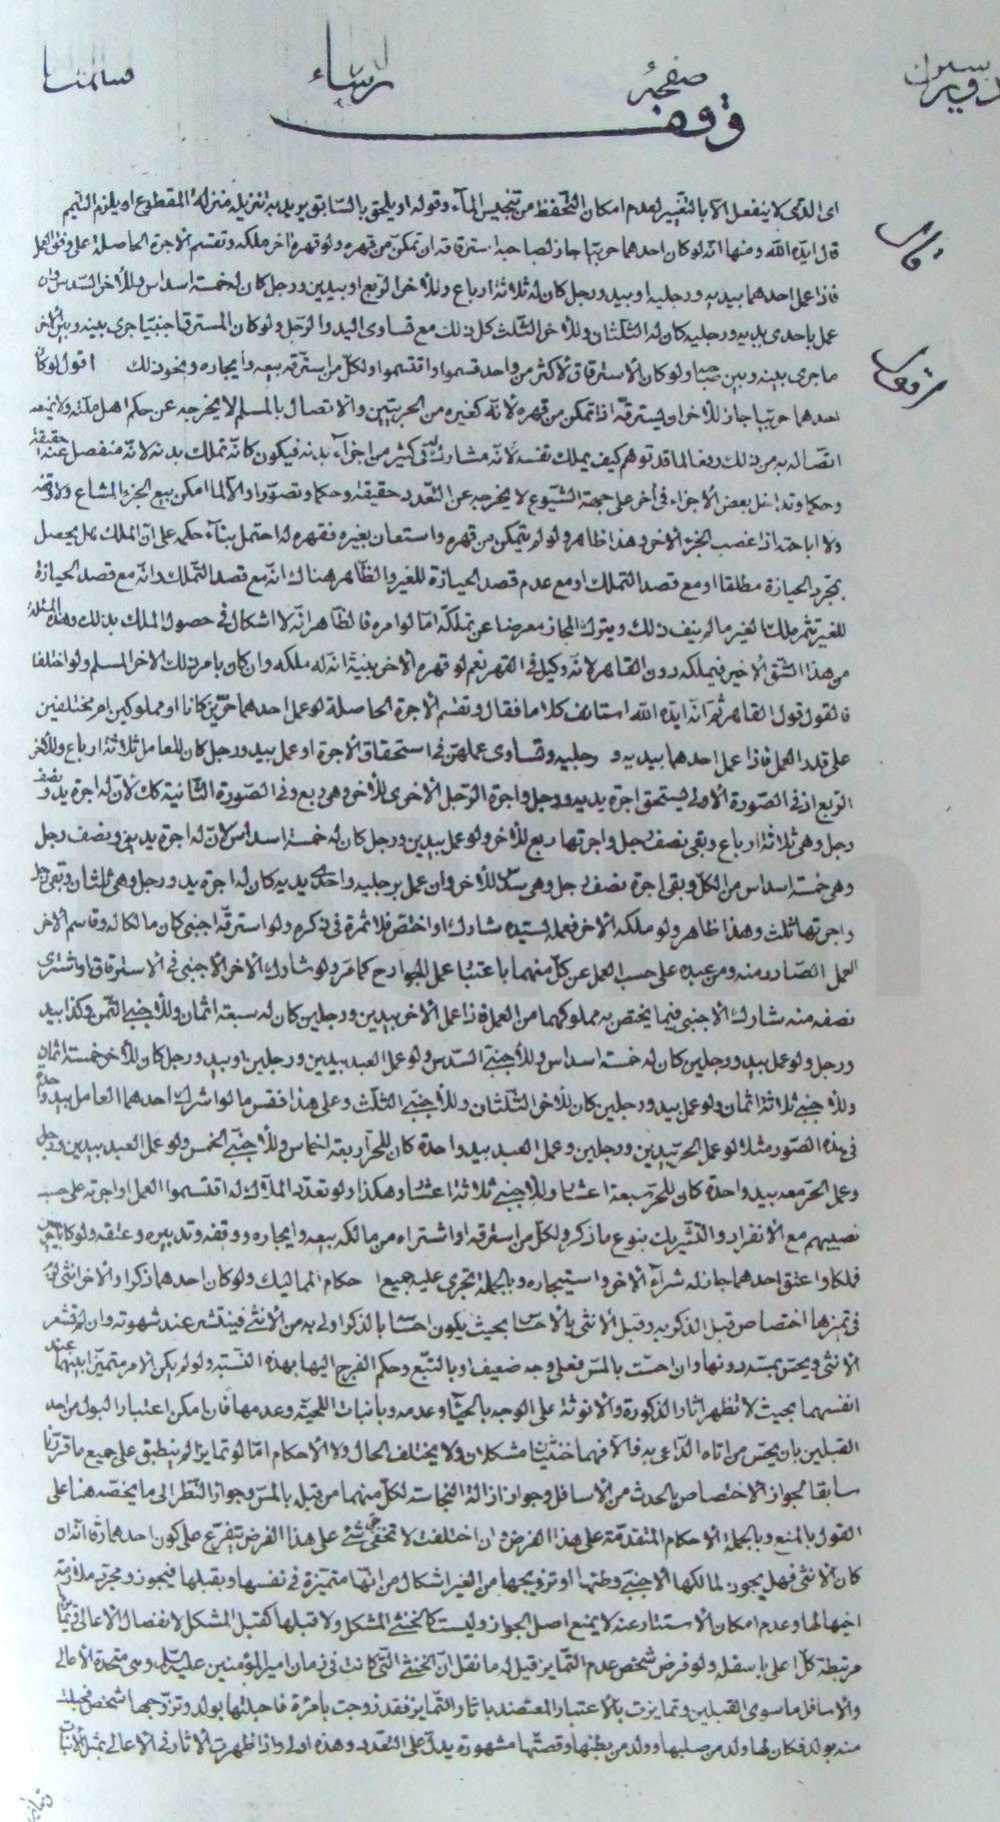 صفحهٔ
وقف
اى الذى لا ينفعل الا بالتغيير لعدم امكان التحفظ من تنجيس الماء وقوله او يلحق بالسابق يريد به تنزيله منزله المقطوع او يلزم التيمم
قال ايده الله ومنها انه لو كان احدهما حربيا جاز لصاحبه استرقاقه ان تمكن من قهره ولو قهره اخر ملكه وتقسم الاجرة الحاصلة على وفق العمل
فاذا عمل احدهما بيديه ورجليه او بيد ورجل كان له ثلاثة ارباع وللاخر الربع او بيدين ورجل كان له خمسة اسداس وللاخر السدس وان
عمل باحدى يديه ورجليه كان له الثلثان وللاخر الثلث كل ذلك مع تساوى اليد والرجل ولو كان المسترق اجنبيا جرى بينه وبين الاخر
ما جرى بينه وبين صاحبه ولو كان الاسترقاق لاكثر من واحد قسموا واقتسموا ولكل من استرقه بيعه وايجاره ونحو ذلك اقول لو كان
احدهما حربيا جاز للاخر ان يسترقه اذا تمكن من قهره لانه كغيره من الحربيين والاتصال بالمسلم لا يخرجه عن حكم اهل ملته ولا يمنعه
اتصاله به من ذلك دفعا لما قد توهم كيف يملك نفسه لانه مشارك له فى كثير من اجزاء بدنه فيكون كانه تملك بدنه لانه منفصل عنه حقيقة
وحكما وتداخل بعض الاجزاء فى اخر على جهة الشيوع لا يخرجه عن التعدد حقيقة وحكما وتصورا والا لما امكن بيع الجزء المشاع ولا وقفه
ولا اباحته اذا غصب الجزء الاخر وهذا ظاهر ولو لم يتمكن من قهره واستعان بغيره فقهره له احتمل بناء حكمه على ان الملك هل يحصل
بمجرد الحيازة مطلقا او مع قصد التملك او مع عدم قصد الحيازة للغير والظاهر هناك انه مع قصد التملك وانه مع قصد الحيازة
للغير تثمر ملك الغير ما لم ينف ذلك ويترك المجاز معرضا عن تملكه اما لو امره فالظاهر انه لا اشكال فى حصول الملك بذلك وهذه المسئلة
من هذا الشق الاخير فيملكه دون القاهر لانه وكيل فى القهر نعم لو قهره الاخر بنية انه له ملكه وان كان بامر ذلك الاخر المسلم ولو اختلفا
فالقول قول القاهر ثم انه ايده الله استانف كلاما فقال وتقسم الاجرة الحاصلة لو عمل احدهما حرين كانا او مملوكين ام مختلفين
على قدر العمل فاذا عمل احدهما بيديه و رجليه وتساوى عملهن فى استحقاق الاجرة او عمل بيد ورجل كان للعامل ثلاثة ارباع وللاخر
الربع اذ فى الصورة الاولى يستحق اجرة يديه ورجل واجرة الرجل الاخرى للاخر وهى ربع وفى الصورة الثانية كك لان له اجرة يد ونصف
رجل وهى ثلاثة ارباع وبقى نصف رجل واجرتها ربع للاخر ولو عمل بيدين ورجل كان له خمسة اسداس لان له اجرة يدين ونصف رجل
وهى خمسة اسداس من الكل وبقى اجرة نصف رجل وهى سدس للاخر وان عمل برجليه واحدى يديه كان له اجرة يد ورجل وهى ثلثان وبقى رجل
واجرتها ثلث وهذا ظاهر ولو ملكه الاخر فعمله لسيده شاركه او اختص فلا ثمرة فى ذكره ولو استرقه اجنبى كان مالكا له وقاسم الاخر
العمل الصادر منه ومن عبده على حسب العمل عن كل منهما باعتبار عمل الجوارح كما مر ولو شارك الاخر الاجنبى فى الاسترقاق او اشترى
نصفه منه شارك الاجنبى فيما يختص به مملوكهما من العمل فاذا عمل الاخر بيدين ورجلين كان له سبعة اثمان وللاجنبى الثمن وكذا بيد
ورجل ولو عمل بيد ورجلين كان له خمسة اسداس وللاجنبى السدس ولو عمل العبد بيدين ورجلين او بيد ورجل كان للاخر خمسة اثمان
وللاجنبى ثلاثة اثمان ولو عمل بيد ورجلين كان للاخر الثلثان وللاجنبى الثلث وعلى هذا فقس ما لو اشترك احدهما العامل بيد واحدة
فى هذه الصور مثلا لو عمل الحر بيدين ورجلين وعمل العبد بيد واحدة كان للحر اربعة اخماس وللاجنبى الخمس ولو عمل العبد بيدين ورجل
وعمل الحر معه بيد واحدة كان للحر سبعة اعشار وللاجنبى ثلاثة اعشار وهكذا ولو تعدد الملاك له اقتسموا العمل او اجرته على حسب
نصيبهم مع الانفراد والتشريك بنوع ما ذكر ولكل من استرقه او اشتراه من مالكه بيعه وايجاره ووقفه وتدبيره وعتقه ولو كانا حربيين
فملكا واعتق احدهما جاز له شراء الاخر واستيجاره وبالجملة تجرى عليه جميع احكام المماليك ولو كان احدهما ذكرا والاخر انثى
فى تميزها اختصاص قبل الذكر به وقبل الانثى بالاحساس بحيث يكون احساسا بالذكر اولى به من الانثى فينتشر عند شهوته وان لم تشعر
الانثى ويحس بمسه دونها وان احست بالمس فعلى وجه ضعيف او بالتبع وحكم الفرج اليها بهذه النسبة ولو لم يكن الامر متميزا بينهما عند
انفسهما بحيث لا تظهر اثار الذكورة والانوثة على الوجه بالحياء وعدمه وبانبات اللحية وعدمها فان امكن اعتبار البول من احد
القبلين بان يحس من اتاه الداعى به فالا فهما خنثيان مشكلان ولا يختلف الحال ولا الاحكام اما لو تمايزا لم ينطبق على جميع ما قررنا
سابقا لجواز الاختصاص بالحدث من الاسافل وجواز ازالة النجاسة لكل منهما من قبله بالمس وجواز النظر الى ما يخصه هنا على
القول بالمنع وبالجملة الاحكام المتقدمة على هذا الفرض وان اختلفت لا تخفى على هذا الفرض يتفرع على كون احدهما مرأة انه ان
كان الانثى فهل يجوز لمالكها الاجنبى وطئها او تزويجها من الغير اشكال من انها متميزة فى نفسها وبقبلها فيجوز ومجرد ملازمة
اخيها لها وعدم امكان الاستتار عنه لا يمنع اصل الجواز وليست كالخنثى المشكل ولا قبلها كقبل المشكل لانفصال الاعالى
مرتبطة كل اعلى باسفله ولو فرض شخص عدم التمايز قيل له ما نقل ان الخنثى التى كانت فى زمان امير المؤمنين عليه السلام وهى متحدة الاعالى
والاسافل ما سوى القبلين وتمايزت بالاعتبار المعتضد باثار التمايز فقد زوجت بامرأة فاحبلتها بولد وتزوجها شخص فحبلت
منه بولد فكان لها ولد من صلبها وولد من بطنها وقصتها مشهورة يدل على التعدد وهذه اولى واذا ظهرت الاثار فى الاعالى بمثل الانبات